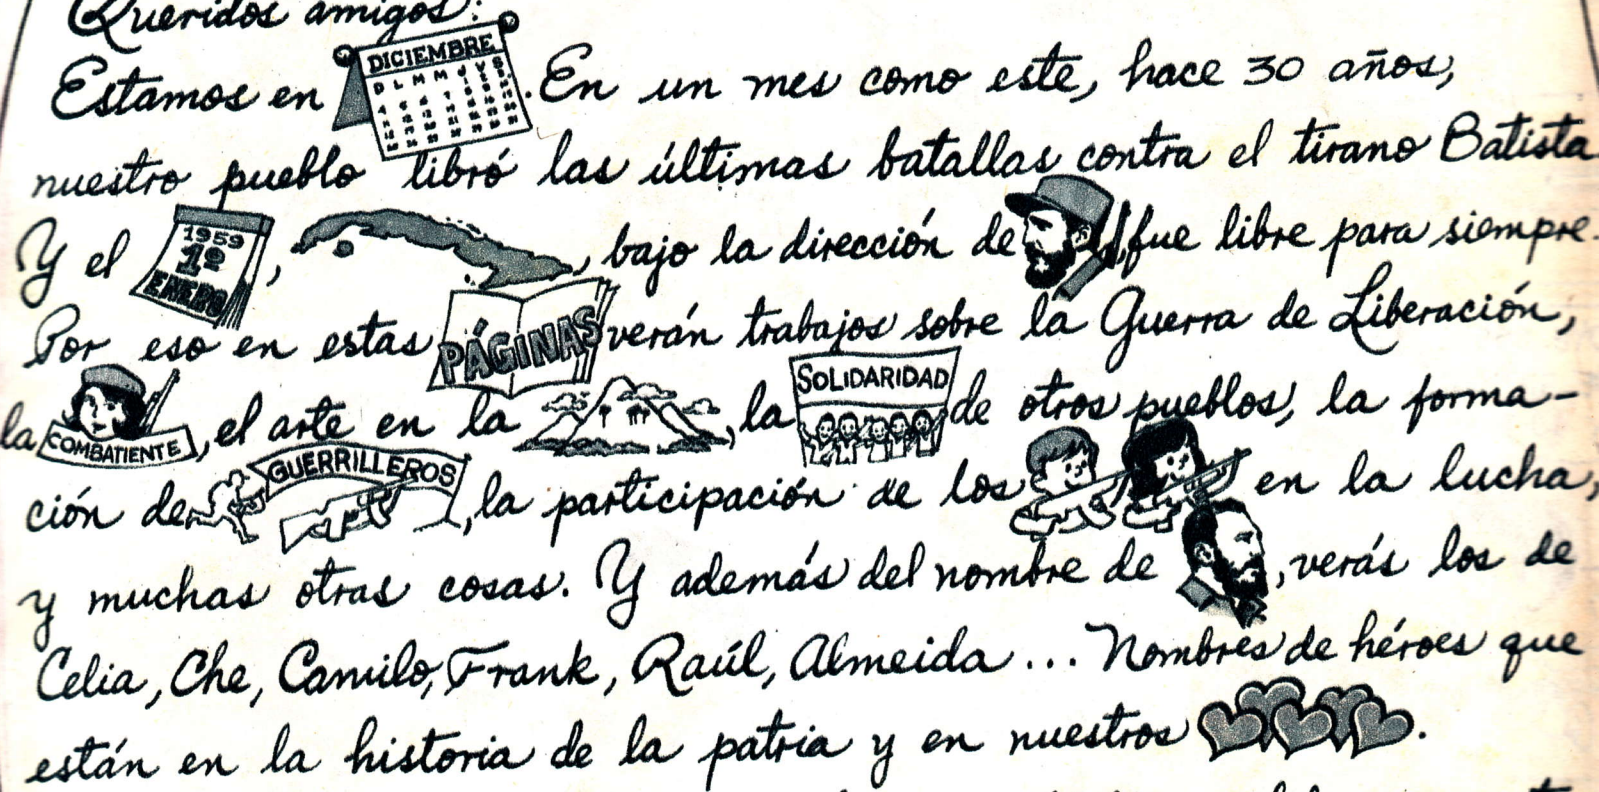 Queridos amigos:
Estamos en DICIEMBRE D L M M J V S. En un mes como este, hace 30 años,
nuestro pueblo libró las últimas batallas contra el tirano Batista
Y el 1959 1º ENERO, , bajo la dirección de , fue libre para siempre.
Por eso en estas PÁGINAS verán trabajos sobre la Guerra de Liberación,
la COMBATIENTE, el arte en la , la SOLIDARIDAD de otros pueblos, la forma-
ción de GUERRILLEROS, la participación de los en la lucha,
y muchas otras cosas. Y además del nombre de , verás los de
Celia, Che, Camilo, Frank, Raúl, Almeida... Nombres de héroes que
están en la historia de la patria y en nuestros .